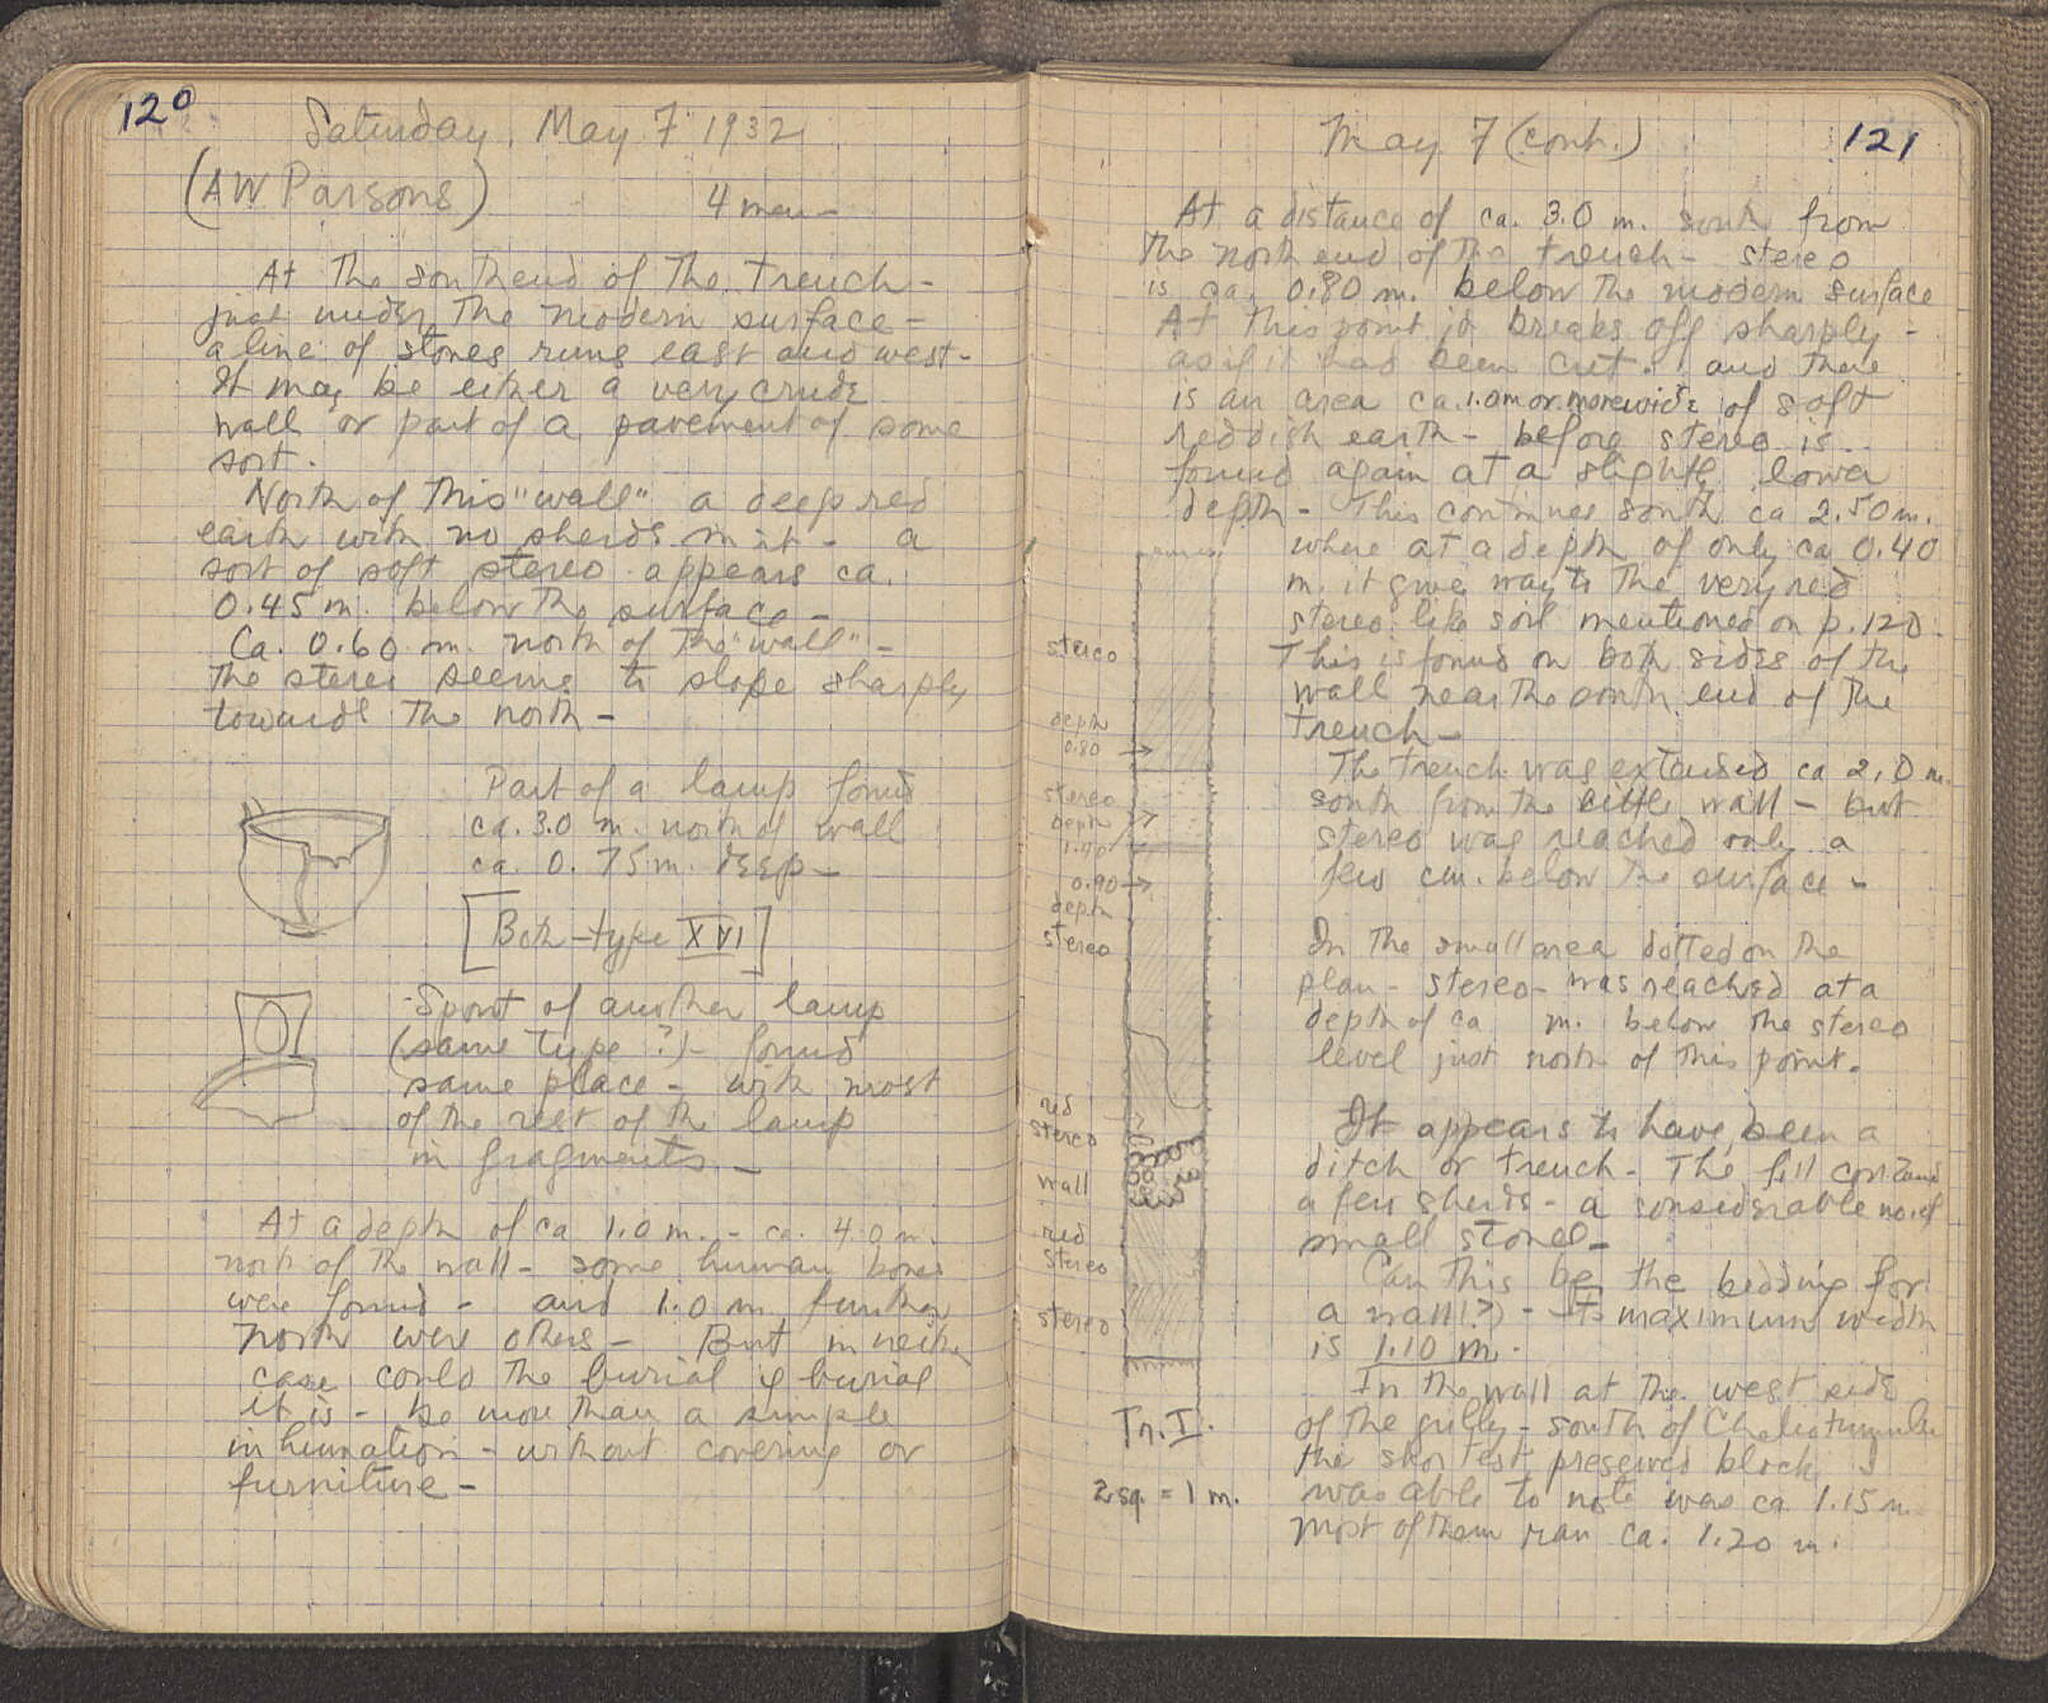 120
Saturday, May 7 1932
(AW Parsons)
4 men -
At the south end of the trench -
just under the modern surface -
a line of stones runs east and west -
It may be either a very crude
wall or part of a pavement of some
sort.
North of this "wall" a deep red
earth with no sherds in it - a
sort of soft stereo appears ca.
0.45 m. below the surface -
Ca. 0.60 m. north of the "wall" -
the stereo seems to slope sharply
towards the north -
Part of a lamp found
ca. 3.0 m. north of wall
ca. 0.75 m. deep -
[Both - type XVI]
Spout of another lamp
(same type?) - found
same place - with most
of the rest of the lamp
in fragments -
At a depth of ca 1.0 m. - ca. 4.0 m.
north of the wall - some human bones
were found - and 1.0 m further
north were others - But in neither
case could the burial if burial
it is - be more than a simple
inhumation - without covering or
furniture -
May 7 (cont.)
121
At a distance of ca. 3.0 m. south from
the north end of the trench - stereo
is ca. 0.80 m. below the modern surface
At this point it breaks off sharply -
as if it had been cut. and there
is an area ca. 1.0 m or more wide of soft
reddish earth - before stereo is
found again at a slightly lower
depth - This continues south ca 2.50 m.
where at a depth of only ca 0.40
m. it gives way to the very red
stereo-like soil mentioned on p. 120.
This is found on both sides of the
wall near the south end of the
trench -
The trench was extended ca 2.0 m.
south from the little wall - but
stereo was reached only a
few cm. below the surface -
In the small area dotted on the
plan - stereo - was reached at a
depth of ca m. below the stereo
level just north of this point.
It appears to have been a
ditch or trench - The fill contained
a few sherds - a considerable no. of
small stones -
Can this be the bedding for
a wall (?) - Its maximum width
is 1.10 m.
In the wall at the west side
of the gully - south of
the shortest preserved block I
was able to note was ca 1.15 m
most of them ran ca. 1.20 m.
stereo
depth
0.80 →
stereo
depth
0.90 →
depth
stereo
red
stereo
wall
red
stereo
stereo
Tr. I.
2 sq. = 1 m.